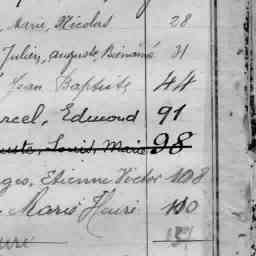 Marie, Nicolas 28
Julien, Auguste, Bienaimé 31
Jean Baptiste 44
rcel, Edmond 91
uste, Louis, Marie 98
ges, Etienne Victor 108
Marie Henri 110
131